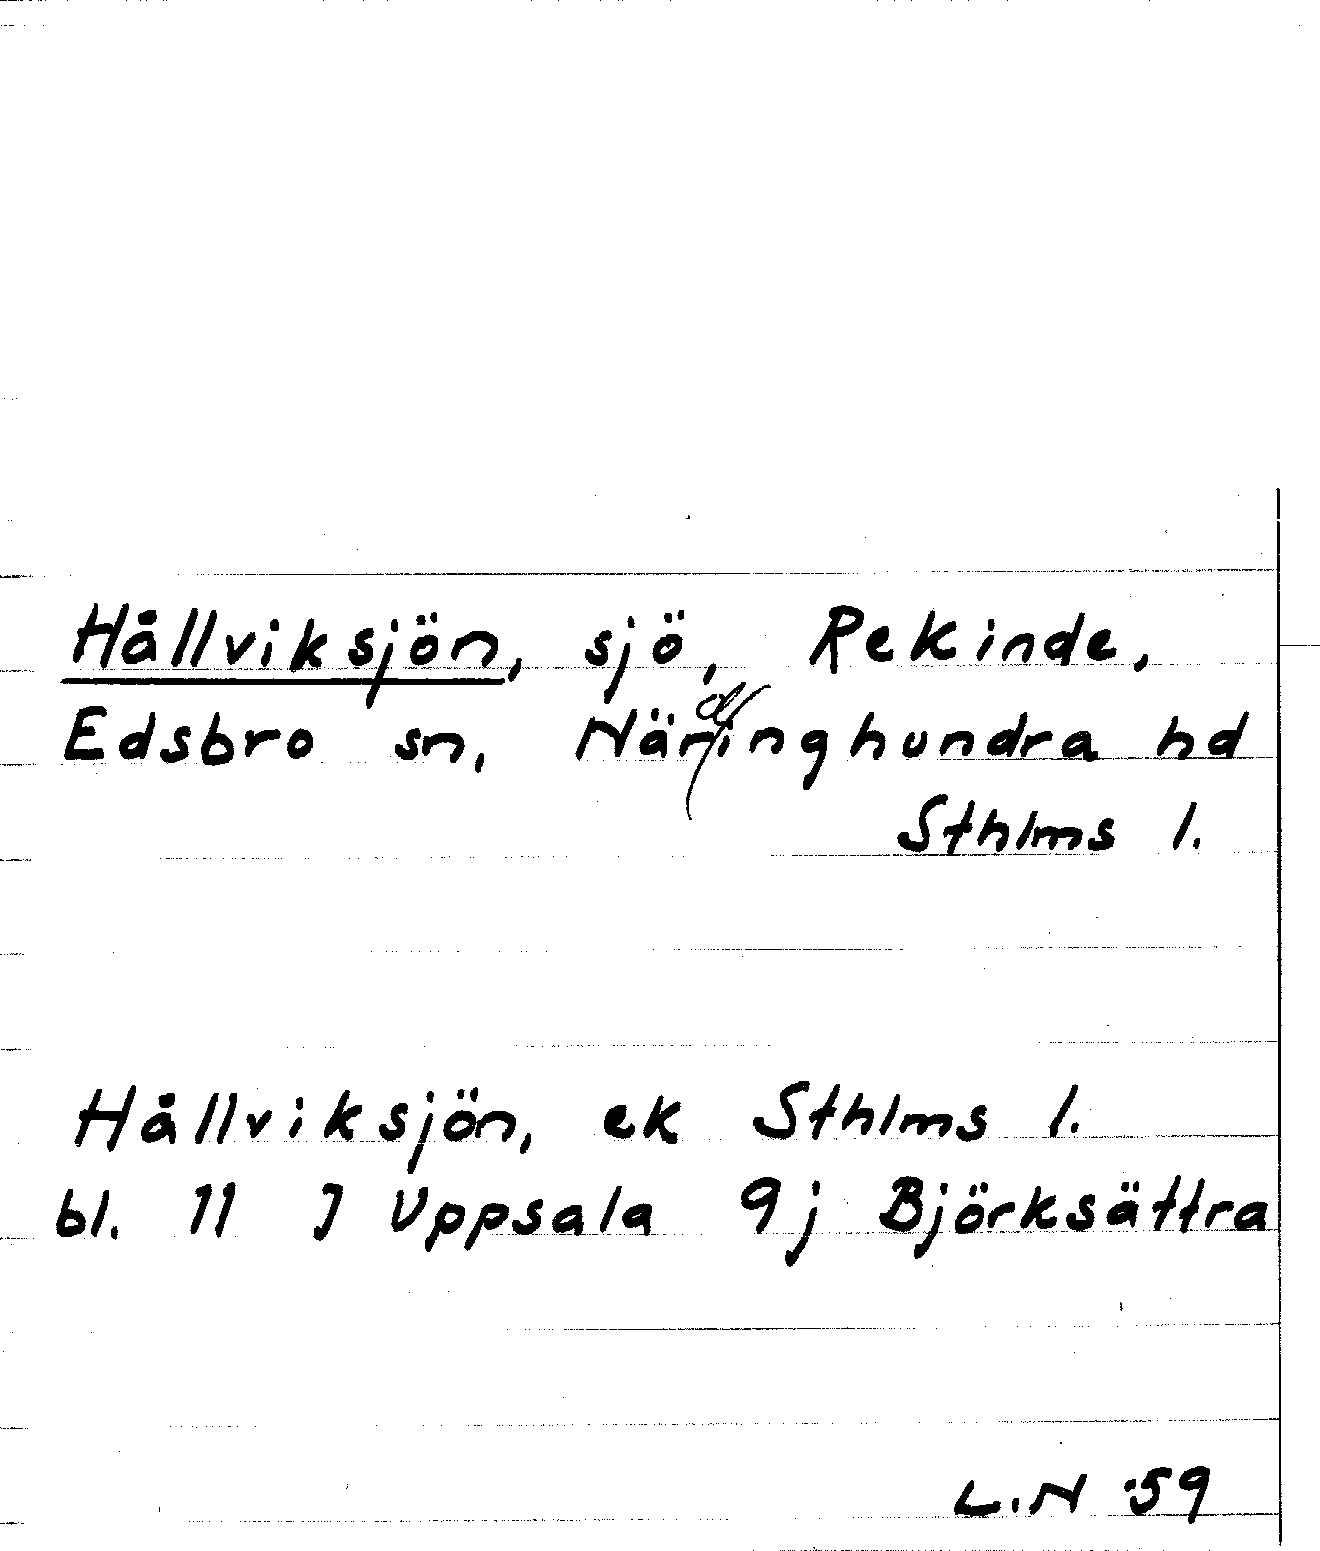 Hållviksjön, sjö, Rekinde,
Edsbro sn, Närdinghundra hd
Sthlms l.
Hållviksjön, ek Sthlms l.
bl. 11 J Uppsala 9j Björksättra
L.N 59